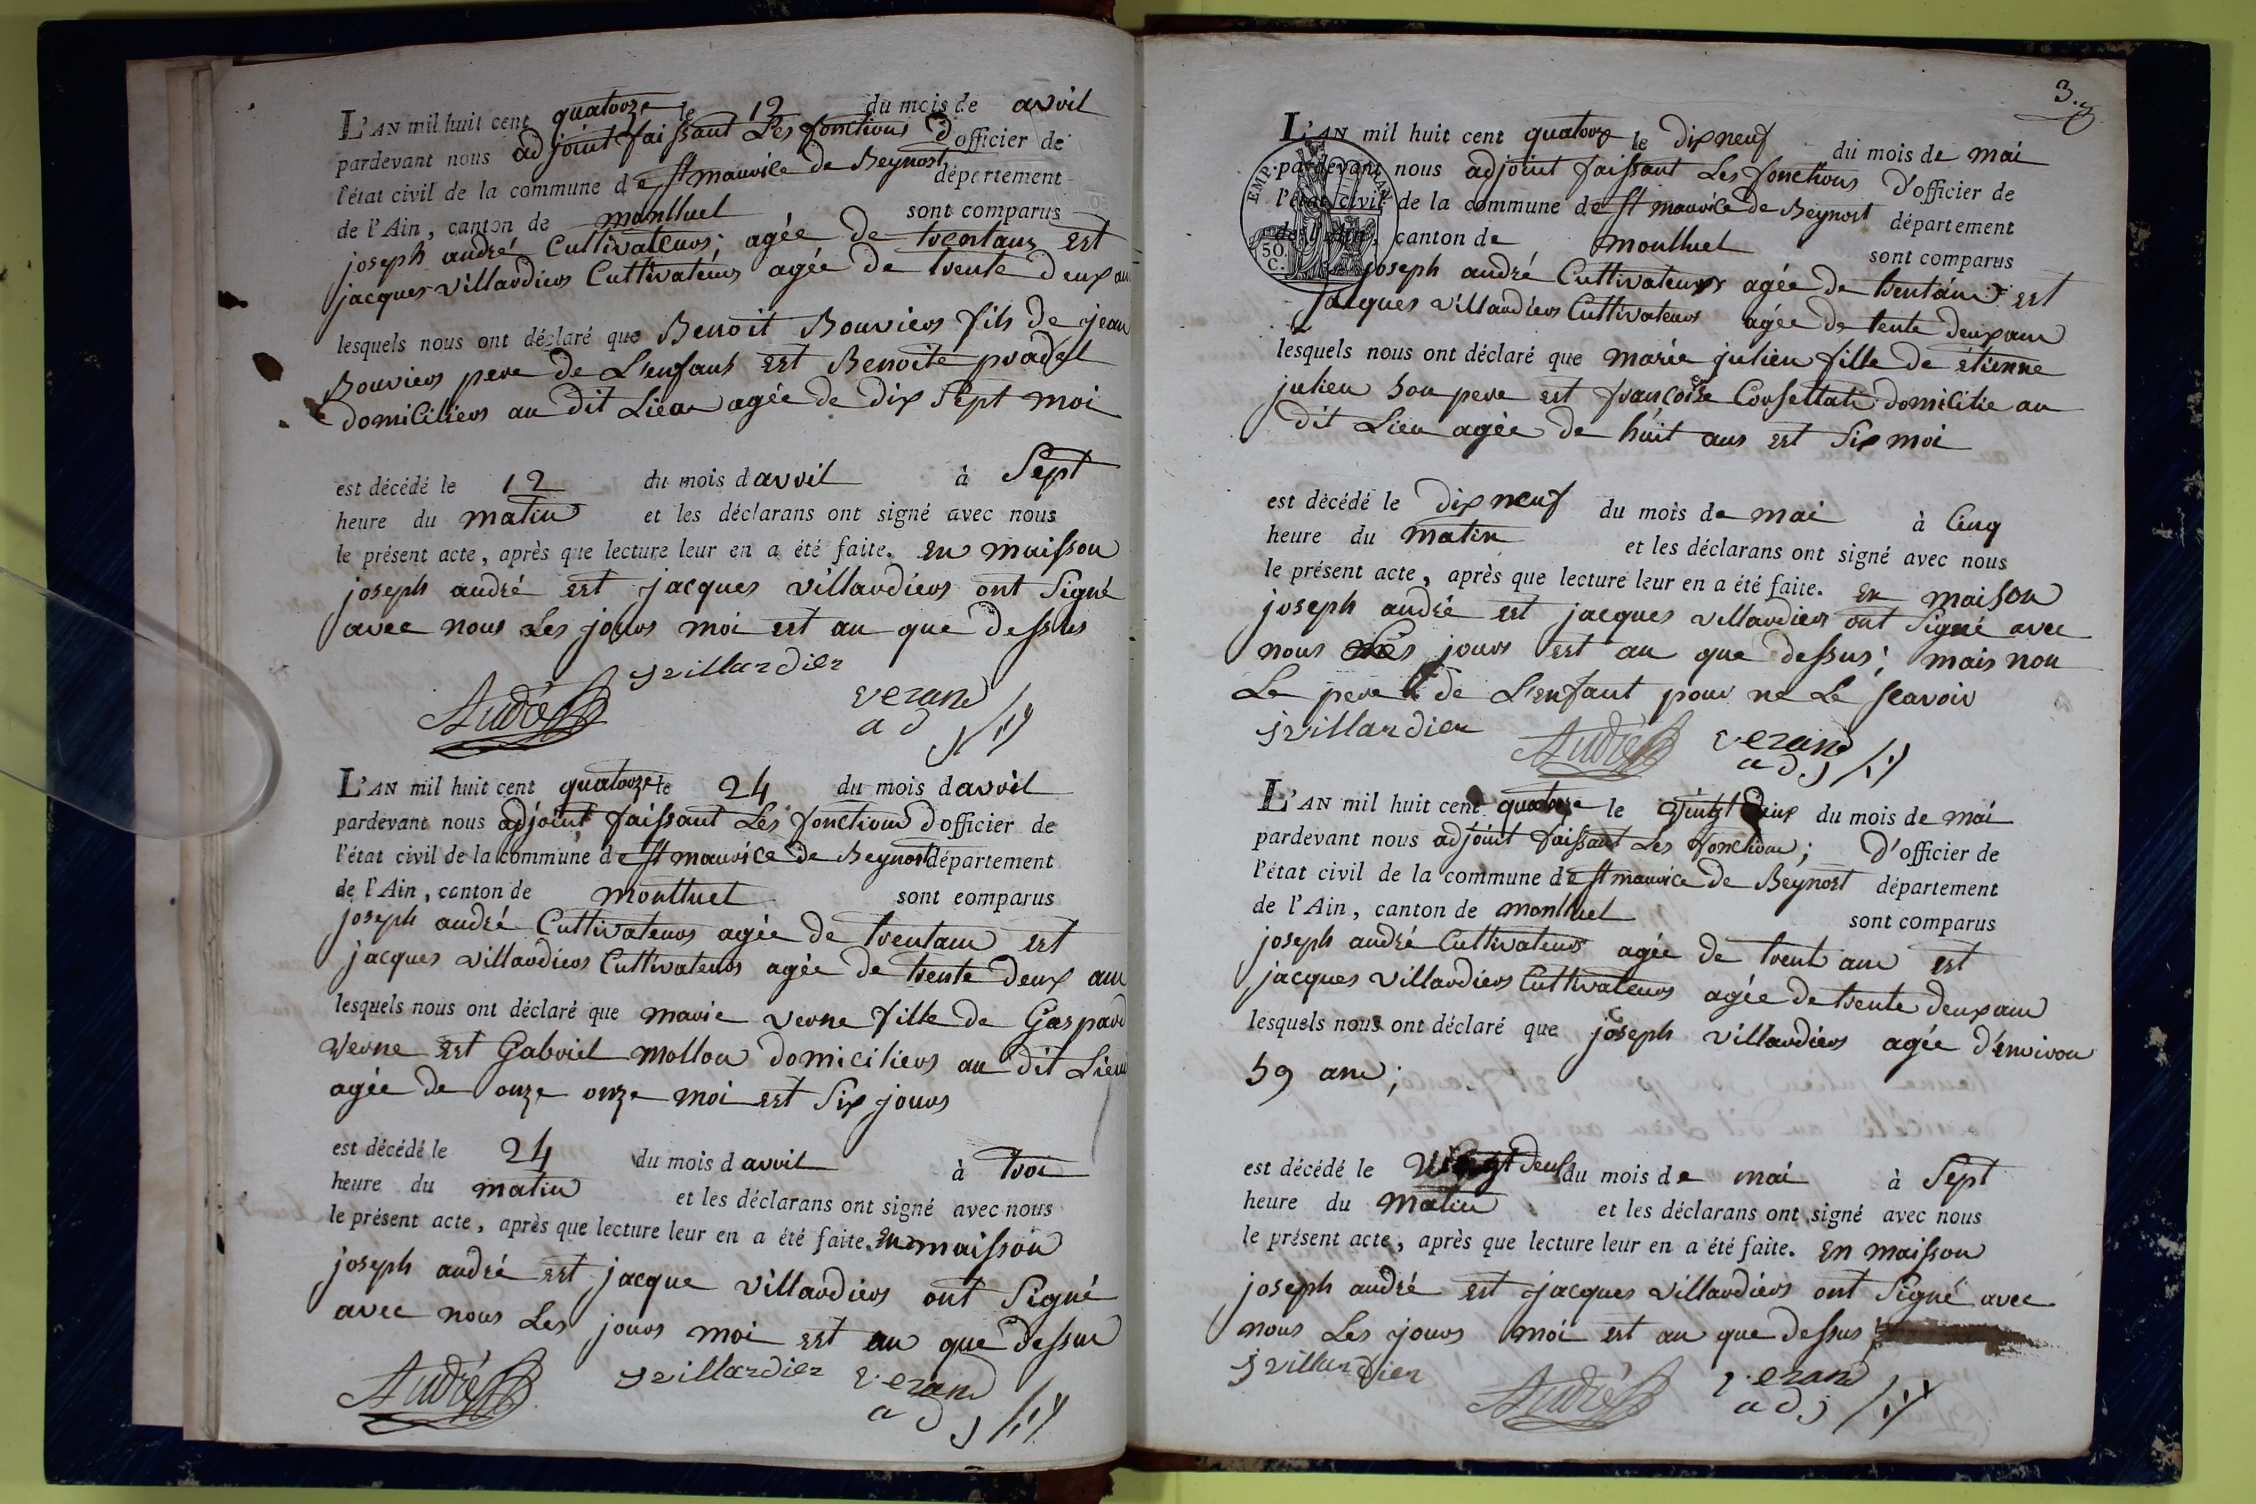 L'AN mil huit cent quatorze le 12 du mois de avril
pardevant nous adjoint faissant Les fonctions D'officier de
l'état civil de la commune de St mauvice de Beynost département
de l'Ain, canton de montluel sont comparus
joseph andré Cultivateurs; agée de trentans est
jacques villardiers Cultivateurs agée de trente deux ans
lesquels nous ont déclaré que Benoit Bouviers fils de jean
Bouviers pere de L'enfant est Benoite pradel
domiciliers au dit Lieu agée de dix Sept moi
est décédé le 12 du mois d avril à Sept
heure du matin et les déclarans ont signé avec nous
le présent acte, après que lecture leur en a été faite. En maisson
joseph andré est jacques villardiers ont Signé
avec nous Les jours moi est an que dessus
jvillardier
André verand
ad j
L'AN mil huit cent quatorze le 24 du mois d avril
pardevant nous adjoint faissant Les fonctions d'officier de
l'état civil de la commune de St mauvice de Beynost département
de l'Ain, canton de montluel sont comparus
joseph andré Cultivateurs agée de trentans est
jacques villardiers Cultivateurs agée de trente deux ans
lesquels nous ont déclaré que marie verne fille de Gaspard
verne est Gabriel mollon domiciliers au dit Lieu
agée de onze onze moi est Six jours
est décédé le 24 du mois d avril à troi
heure du matin et les déclarans ont signé avec nous
le présent acte, après que lecture leur en a été faite. En maisson
joseph andré est jacque villardiers ont Signé
avec nous Les jours moi est an que dessus
André jvillardier verand
ad j
3.
L'AN mil huit cent quatorze le dix neuf du mois de mai
pardevant nous adjoint faissant Les fonctions D'officier de
l'état civil de la commune de St mauvice de Beynost département
de l'Ain, canton de montluel sont comparus
EMP. FRAN.
50. C.
joseph andré Cultivateurs agée de trentans est
jacques villardiers Cultivateurs agée de tente deux ans
lesquels nous ont déclaré que marie julien fille de étienne
julien Son pere est françoise domicilie au
dit Lieu agée de huit ans est Six moi
est décédé le dix neuf du mois de mai à Cinq
heure du matin et les déclarans ont signé avec nous
le présent acte, après que lecture leur en a été faite. En maison
joseph andré est jacques villardiers ont Signé avec
nous Les jours est an que dessus; mais non
Le pere de L'enfant pour ne Le scavoir
jvillardier André verand
ad j
L'AN mil huit cent quatorze le vintgt deux du mois de mai
pardevant nous adjoint faissant Les fonctions; D'officier de
l'état civil de la commune de St mauvice de Beynost département
de l'Ain, canton de montluel sont comparus
joseph andré Cultivateurs agée de trent ans est
jacques villardiers Cultivateurs agée de trente deux ans
lesquels nous ont déclaré que joseph villardiers agée d'environ
59 ans;
est décédé le vingt deux du mois de mai à Sept
heure du matin et les déclarans ont signé avec nous
le présent acte, après que lecture leur en a été faite. En maisson
joseph andré est jacques villardiers ont Signé avec
nous Les jours moi est an que dessus
jvillardier André verand
ad j